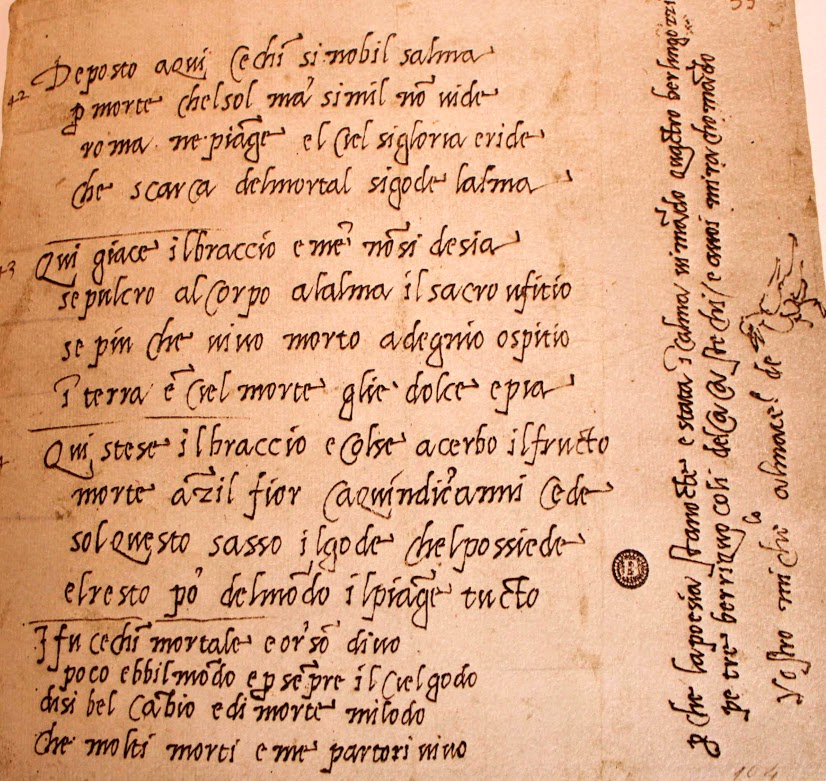 42 Deposto aqui cechī sinobil salma
ꝑ morte chelsol ma' simil nō uide
roma ne piāge el ciel sigloria eride
che scarca delmortal sigode lalma
43 Qui giace ilbraccio e me' nōsi desia
sepulcro alcorpo alalma il sacro ufitio
se piu che uiuo morto adegnio ospitio
ī terra e ciel morte glie dolce epia
Qui stese ilbraccio e colse acerbo ilfructo
morte āzil fior caquindicianni cede
sol questo sasso ilgode chelpossiede
elresto po' delmōdo ilpiāge tucto
I fu cechī mortale e or sō diuo
poco ebbilmōdo eꝑ sēpre il cielgodo
disi bel cābio edi morte milodo
che molti morti e me partori uiuo
ꝑ che lapoesia stanocte e stata ī calma ui mādo quactro berlingozzi
pe tre berriquocoli delcacastechi / e auoi mi rachomādo
Vostro michi lo almacel de